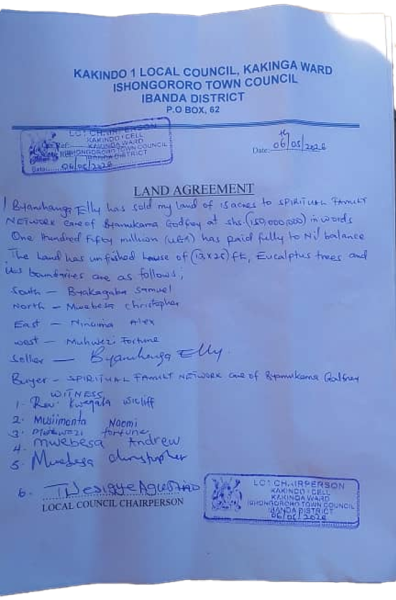 KAKINDO 1 LOCAL COUNCIL, KAKINGA WARD
ISHONGORORO TOWN COUNCIL
IBANDA DISTRICT
P.O BOX, 62
LC1 CHAIRPERSON
KAKINDO 1 CELL
KAKINGA WARD
ISHONGORORO TOWN COUNCIL
IBANDA DISTRICT
06/05/2026
Date: 06/05/2026
LAND AGREEMENT
I Byamhanga Elly has sold my land of 15 acres to SPIRITUAL FAMILY
NETWORK care of Byamukama Godfrey at shs (150,000,000) in words
One Hundred Fifty million (UGX) has paid fully to Nil balance
The Land has unfished house of (12x25) ft, Eucalptus trees and
its boundaries are as follows;
South - Byakagaba Samuel
North - Mwebesa Christopher
East - Ninsima Alex
West - Muhwezi Fortune
Seller - Byamhanga Elly
Buyer - SPIRITUAL FAMILY NETWORK care of Byamukama Godfrey
WITNESS
1. Rev. Kwegala Wicliff
2. Musiimenta Naomi
3. fortune
4. Mwebesa Andrew
5. Mwebesa christopher
6.
LOCAL COUNCIL CHAIRPERSON
LC1 CHAIRPERSON
KAKINDO 1 CELL
KAKINGA WARD
ISHONGORORO TOWN COUNCIL
IBANDA DISTRICT
06/05/2026